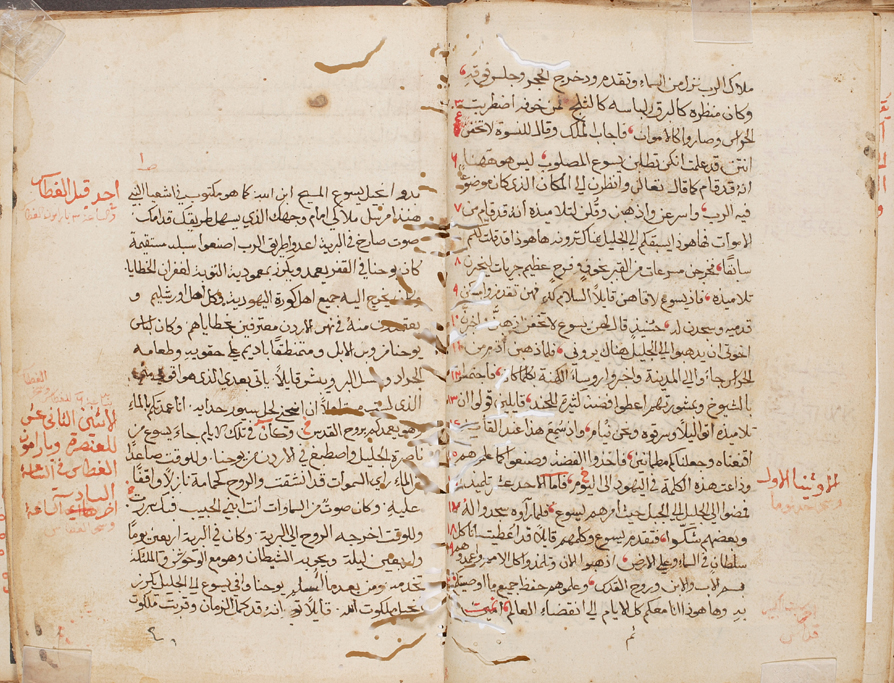 ملاك الرب نزل من السماء وتقدم ودحرج الحجر وجلس فوقه
وكان منظره كالبرق ولباسه كالثلج فمن خوفه اضطربت
الحراس وصاروا كالاموات فاجاب الملاك وقال للنسوة لا تخفن
انتن قد علمت انكن تطلبن يسوع المصلوب ليس هو ههنا
انه قد قام كما قال تعالين وانظرن الى المكان الذي كان موضوع
فيه الرب واسرعن واذهبن وقلن لتلاميذه انه قد قام من
الاموات فها هوذا يسبقكم الى الجليل هناك ترونه ها هوذا قد قلت لكم
سابقا فخرجن مسرعات من القبر بخوف وفرح عظيم جريات ليخبرن
تلاميذه فاذ يسوع لاقاهن قايلا السلام لكن فهن تقدمن وامسكن
قدميه وسجدن له حينئذ قال لهن يسوع لا تخفن اذهبن اخبرن
اخوتي ان يذهبوا الى الجليل هناك يروني فلما ذهبن اذ قوم من
الحراس جاءوا الى المدينة واخبروا روساء الكهنة بكلما كان فاجتمعوا
بالشيوخ وتشاوروا اعطوا فضة كثيرة للجند قايلين قولوا ان
تلاميذه اتوا ليلا وسرقوه ونحن نيام واذ سمع هذا عند القايد
اقنعناه وجعلناكم مطمانين فاخذوا الفضة وصنعوا كما علموهم
وذاعت هذه الكلمة في اليهود الى اليوم فاما الاحد عشر تلميذا
فمضوا الى الجليل الى الجبل حيث امرهم يسوع فلما راوه سجدوا له
وبعضهم شكوا فتقدم يسوع وكلمهم قايلا قد اعطيت انا كل
سلطان في السماء وعلى الارض اذهبوا الان وتلمذوا كل الامم وعمدوهم
بسم الاب والابن وروح القدس وعلموهم حفظ جميع ما اوصيتكم
به وها هوذا انا معكم كل الايام الى انقضاء العالم امين
بدو انجيل يسوع المسيح ابن الله كما هو مكتوب في اشعيا النبي
هنذا مرسل ملاكي امام وجهك الذي يسهل طريقك قدامك
صوت صارخ في البرية اعدوا طريق الرب اصنعوا سبله مستقيمة
كان يوحنا في القفر يعمد ويكرز بمعمودية التوبة لغفران الخطايا
وكان يخرج اليه جميع اهل كورة اليهودية وكل اهل اورشليم و
يعتمدون منه في نهر الاردن معترفين بخطاياهم وكان لباس
يوحنا من وبر الابل ومتمنطقا باديم على حقويه وطعامه
الجراد وعسل البر وبشر قايلا ياتي بعدي الذي هو اقوى مني
الذي لست مستحقا ان انحني لحل سيور حذايه انا عمدتكم بالماء
وهو يعمدكم بروح القدس وكان في تلك الايام جاء يسوع من
ناصرة الجليل واصطبغ في الاردن من يوحنا وللوقت صاعدا
من الماء راى السموات قد انشقت والروح كحمامة نازلا واقفا
عليه وكان صوت من السماوات انت ابني الحبيب بك سررت
وللوقت اخرجه الروح الى البرية وكان في البرية اربعين يوما
واربعين ليلة ويجربه الشيطان وهو مع الوحوش والملايكة
تخدمه ومن بعد ما اسلم يوحنا وافى يسوع الى الجليل يكرز
بانجيل ملكوت الله قايلا انه قد كمل الزمان وقربت ملكوت
احد قبل الغطاس
لاثنين الثاني عشر
للعنصرة وبارامون
الغطاس في الساعة
السادسة